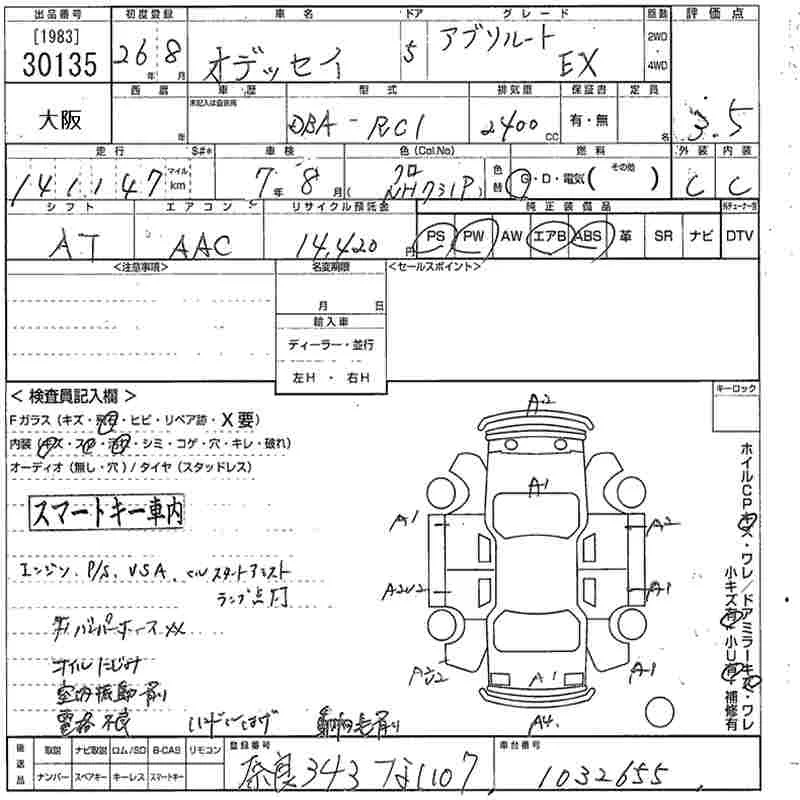 出品番号 初度登録 車名 ドア グレード 駆動 評価点
[1983]
30135 26年8月 オデッセイ 5 アブソルート EX 2WD・4WD
大阪 西暦 年 車歴 型式 排気量 保証書 定員
未記入は自家用
DBA-RC1 2400cc 有・無 名 3.5
走行 $#* 車検 色(Col,No) 燃料 外装 内装
141,147 マイル km 7年8月 クロ (NH731P) 色替 G・D・電気( その他 ) C C
シフト エアコン リサイクル預託金 純正装備品
AT AAC 14,420円 PS PW AW エアB ABS 革 SR ナビ DTV
<注意事項> 名変期限 <セールスポイント>
月 日
輸入車
ディーラー・並行
左H・右H
キーロック
<検査員記入欄>
Fガラス(キズ・飛石・ヒビ・リペア跡・X要)
内装(キズ・スレ・汚れ・シミ・コゲ・穴・キレ・破れ)
オーディオ(無し・穴)/タイヤ(スタッドレス)
スマートキー車内
エンジン、P/S、VSA、 スタートアシスト
ランプ点灯
オイルにじみ
室内振動有り
電格不良
A2
A1
A1
A2
A2U2
A1
A2U2
A1
A1
A4
ホイルCPキズ・ワレ/ドアミラーキズ・ワレ
小キズ有・小U有・補修有
後送品 取説 ナビ取説 ロム/SD B-CAS リモコン 登録番号 車台番号
ナンバー スペアキー キーレス スマートキー 奈良343 な1107 1032655